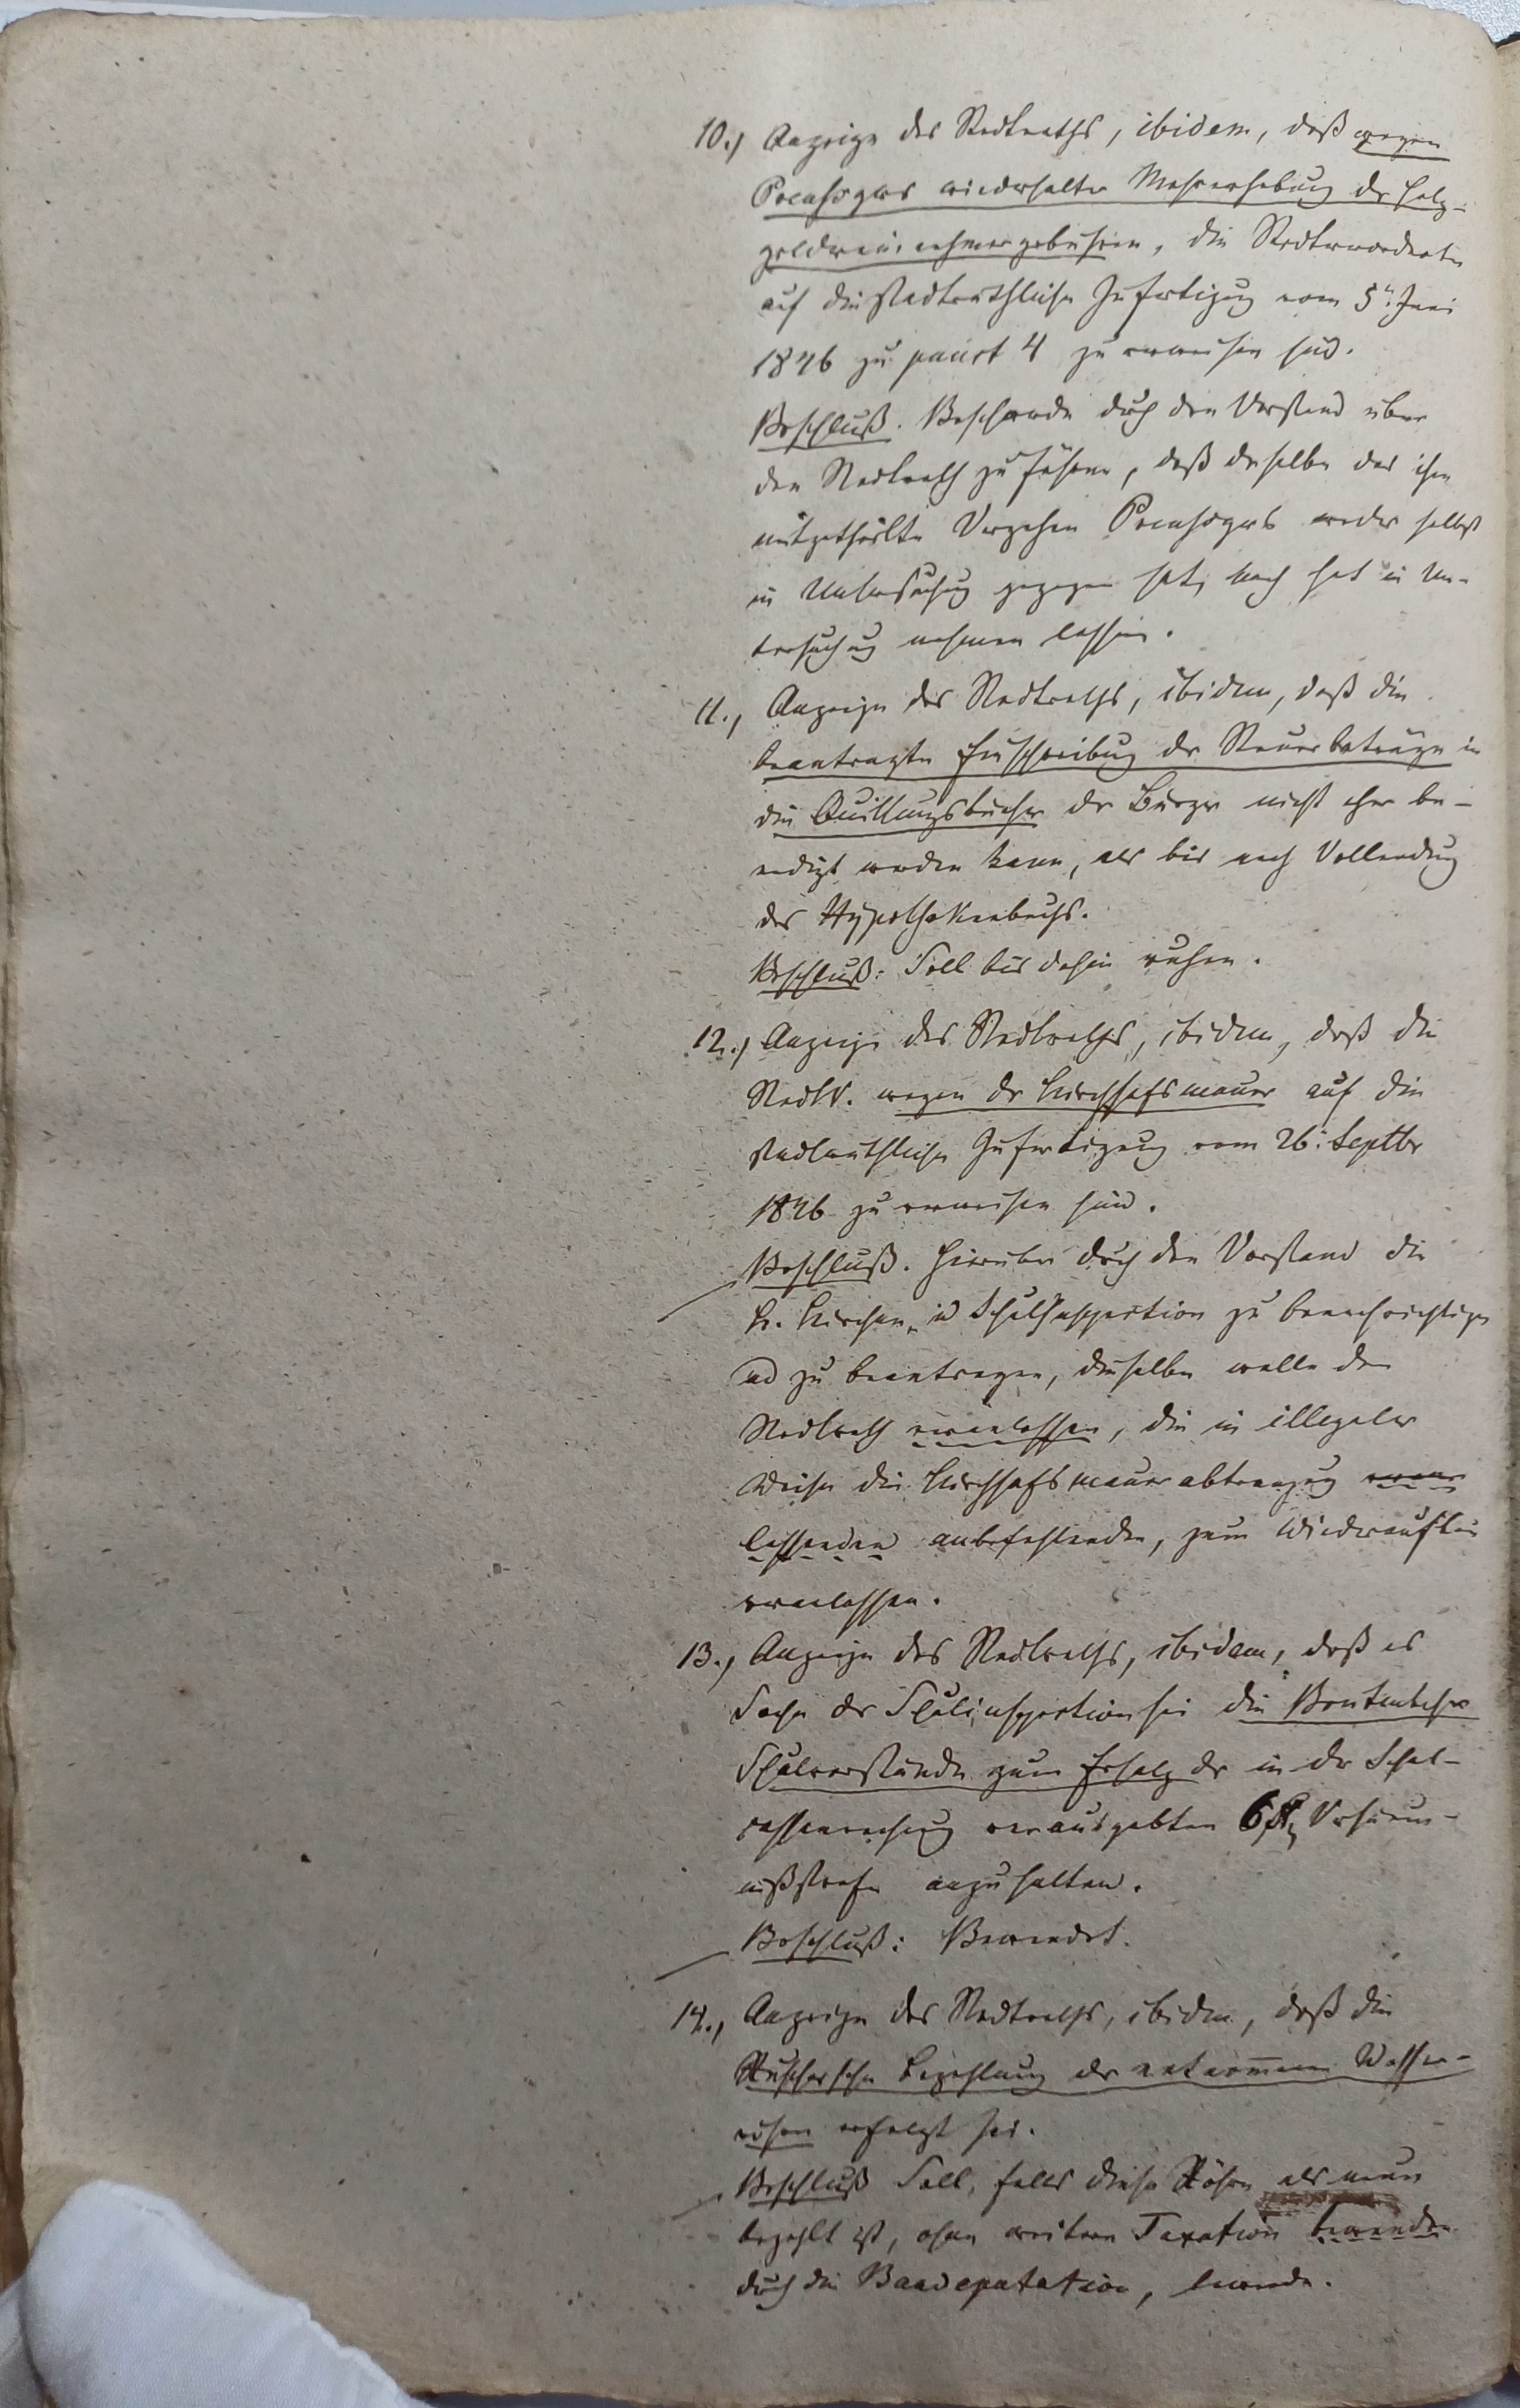 10.) Anzeige des Stadtraths, ibidem, daß wegen
wiederholter Mehrerhebung der Holz-
geldereinnehmergebühren, die Stadtverordneten
auf die stadträthliche Zufertigung vom 5t. Juni
1846 zu punct 4 zu verweisen sind.
Beschluß. Beschwerde durch den Vorstand über
den Stadtrath zu führen, daß derselbe das ihm
mitgetheilte Vergehen weder selbst
in Untersuchung gezogen hat, noch hat in Un-
tersuchung nehmen lassen.
11., Anzeige des Stadtraths, ibidem, daß die
beantragte Einschreibung der Steuerbeträge in
die Quittungsbücher der Bürger nicht eher be-
endigt werden kann, als bis nach Vollendung
des Hypothekenbuchs.
Beschluß: Soll bis dahin ruhen.
12.) Anzeige des Stadtraths, ibidem, daß die
StadtV. wegen der Kirchhofsmauer auf die
stadträthliche Zufertigung vom 26. Septbr
1846 zu verweisen sind.
Beschluß. Hierüber durch den Vorstand die
K. Kirchen- u Schulinspection zu benachrichtigen
und zu beantragen, dieselbe wolle den
Stadtrath veranlassen, die in illegaler
Weise die Kirchhofsmauerabtragung veran-
lassenden anbefehlenden, zum Wiederaufbau
veranlassen.
13., Anzeige des Stadtraths, ibidem, daß es
Sache der Schulinspection sei die
Schulvorstände zum Erfolg der in der Schul-
cassenrechnung verausgabten 6 Versäum-
nißstrafe anzuhalten.
Beschluß: Bewendet.
14., Anzeige des Stadtraths, ibidem, daß die
Bezahlung der entnommenen Wasser-
röhren erfolgt sei.
Beschluß Soll, falls diese Röhren als neue
bezahlt ist, ohne weitere Taxation bewenden
durch die Baudeputation, bewenden.